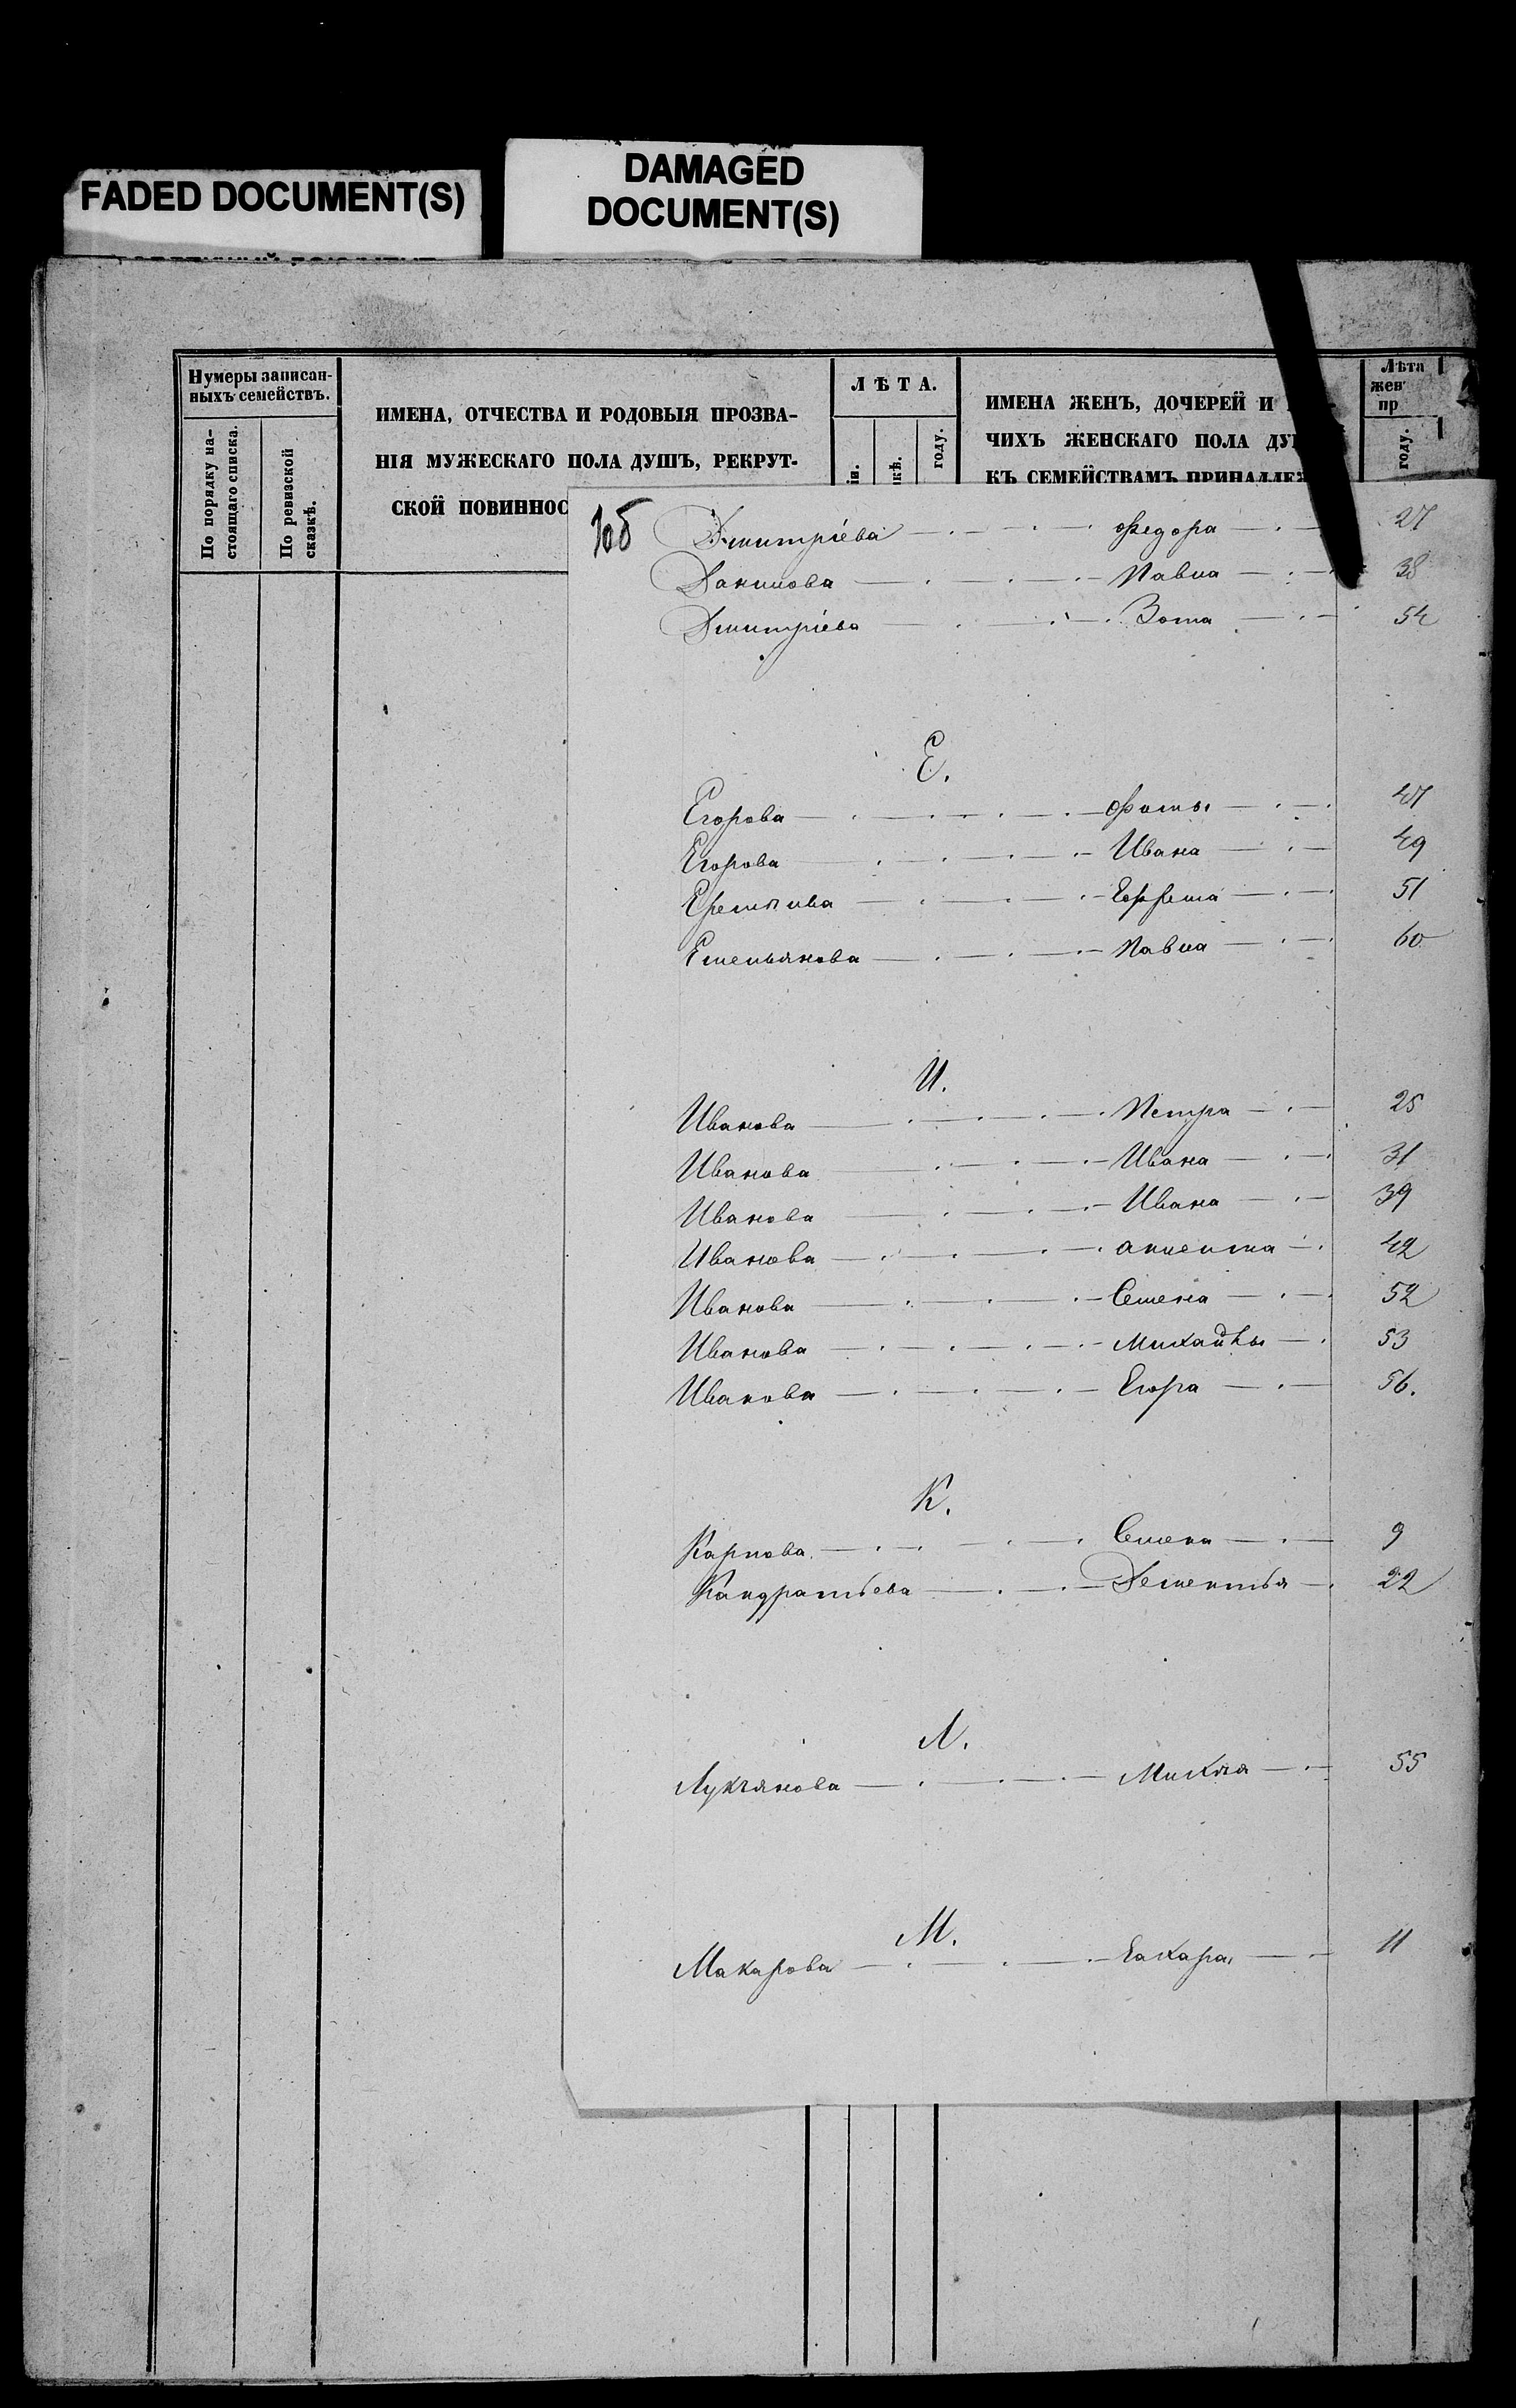 FADED DOCUMENT(S)
DAMAGED
DOCUMENT(S)
Нумеры записан-
ныхъ семействъ.
По порядку на-
стоящаго списка.
По ревизской
сказкѣ.
ИМЕНА, ОТЧЕСТВА И РОДОВЫЯ ПРОЗВА-
НІЯ МУЖЕСКАГО ПОЛА ДУШЪ, РЕКРУТ-
СКОЙ ПОВИННОС
ЛѢТА.
году.
ИМЕНА ЖЕНЪ, ДОЧЕРЕЙ И
ЧИХЪ ЖЕНСКАГО ПОЛА ДУ
КЪ СЕМЕЙСТВАМЪ ПРИНАДЛЕЖ
Лѣта
жен
пр
году.
Дмитріева Федора 27
Данилова Павла 38
Дмитріева Зота 54
Е.
Егорова Фомы 47
Егорова Ивана 49
Еремѣива Ефрема 51
Емельянова Павла 60
И.
Иванова Петра 25
Иванова Ивана 31
Иванова Ивана 39
Иванова 42
Иванова Семена 52
Иванова Михайлы 53
Иванова Егора 56.
К.
Карпова Семена 9
Кандратьева Дементья 22
Л.
Лукьянова 55
М.
Макарова Захара 11